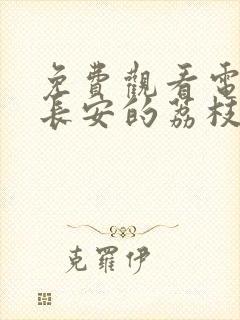 免費觀看電
長安的荔枝
克羅伊